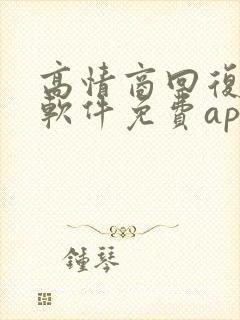 高情商回復
軟件免費ap
鍾琴